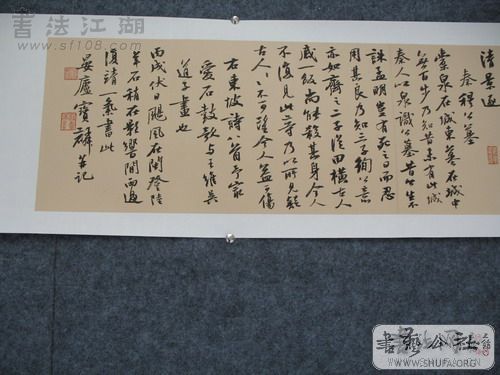 書法江湖
www.sf108.com
清景逈
秦穆公墓
橐泉在城東墓在城中
無百步乃知昔未有此城
秦人以泉識公墓昔公生不
誅孟明豈有死之日而忍
用其良乃知三子徇公意
亦如齊之二子從田橫古人
感一飯尚能殺其身今人
不復見此等乃以所見疑
古人々不可望今人益可傷
右東坡詩八首予最
愛石鼓歌与王維吳
道子畫也
丙戌伏日颶風在閩登陸
石稍在影響間而
復請一氣書此
晏廬寶麟筆記
書藝公社
WWW.SHUFA.ORG